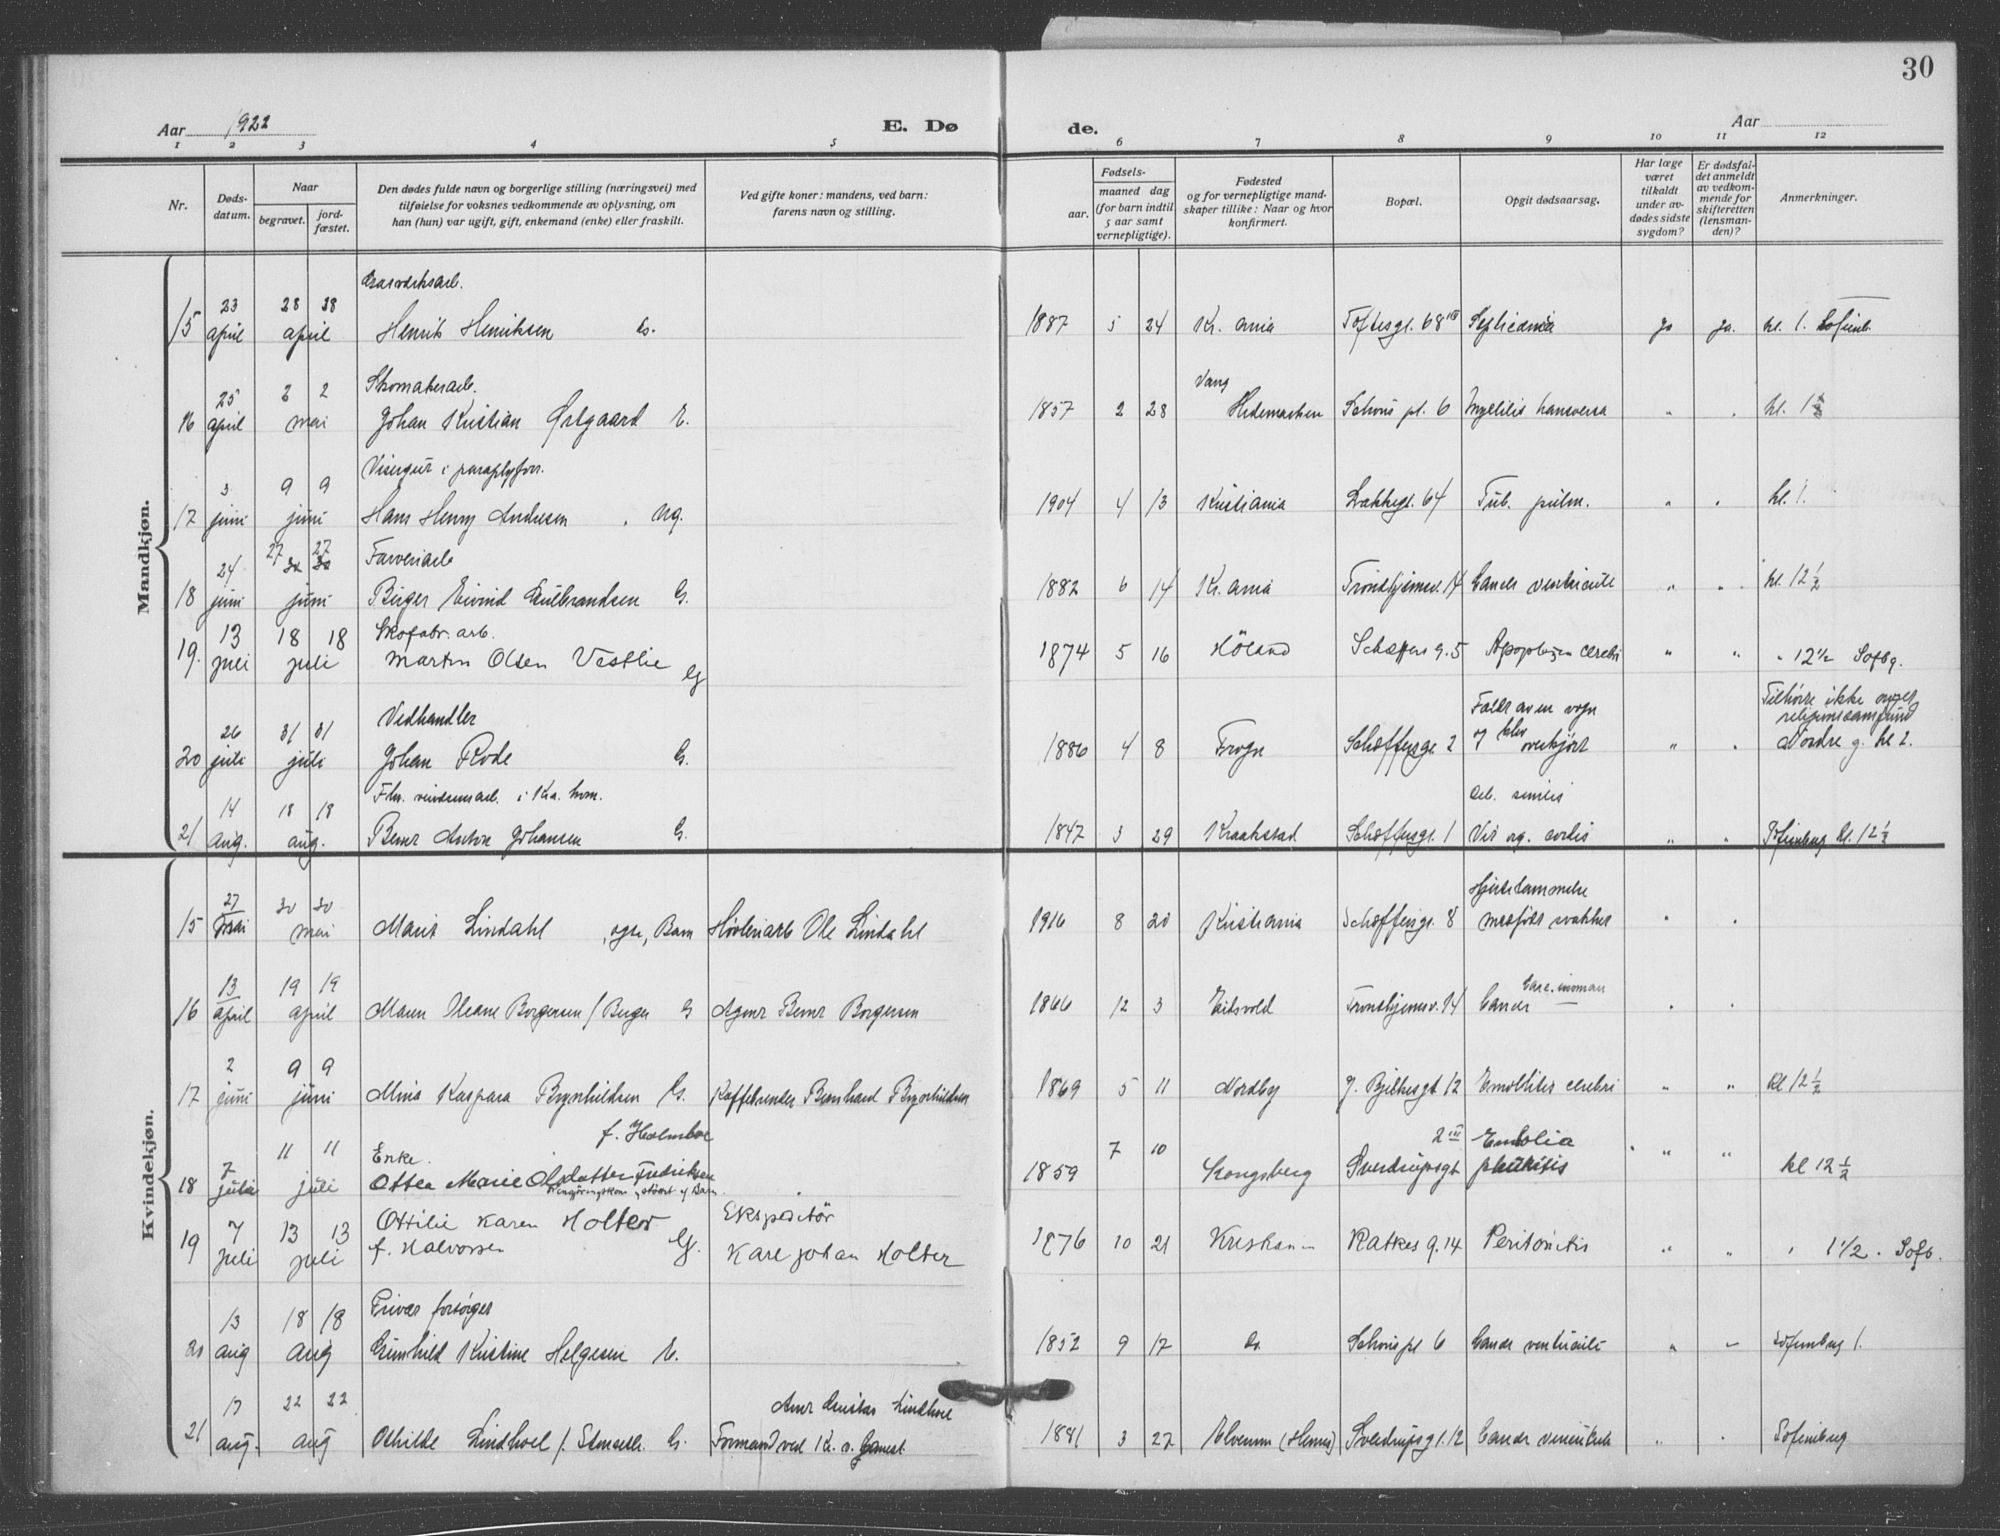 30
Aar 1922
E. Dø
de.
Aar
1 2 3 4 5 6 7 8 9 10 11 12
Nr.
Døds-
datum.
Naar
begravet.
jord-
fæstet.
Den dødes fulde navn og borgerlige stilling (næringsvei) med
tilføielse for voksnes vedkommende av oplysning, om
han (hun) var ugift, gift, enkemand (enke) eller fraskilt.
Ved gifte koner: mandens, ved barn:
farens navn og stilling.
Fødsels-
aar.
maaned dag
(for barn indtil
5 aar samt
vernepligtige).
Fødested
og for vernepligtige mand-
skaper tillike: Naar og hvor
konfirmert.
Bopæl.
Opgit dødsaarsag.
Har læge
været
tilkaldt
under av-
dødes sidste
sygdom?
Er dødsfal-
det anmeldt
av vedkom-
mende for
skifteretten
(lensman-
den)?
Anmerkninger.
Mandkjøn.
23 28 28
15 april april Henrik Henriksen 1887 5 24 Kr.ania Toftesgt. 68 ja ja. kl. 1. Sofienb.
25 2 2 Skomakerarb. Vang
16 april mai Johan Kristian Østgaard E. 1857 2 28 Hedemarken Schous pl. 6 " " kl. 1½
3 9 9 Visergut i paraplyforr.
17 juni juni Hans Henry Andresen Ug. 1904 4 13 Kristiania 64 Tub. pulm. " " kl. 1.
24 27 27 30 30 Farveriarb
18 juni juni Birger Eivind Gulbrandsen G. 1882 6 14 Kr.ania Trondhjemsv. 14 Cancer ventriculi " " kl. 12½
13 18 18 Skofabr. arb.
19. juli juli Martin Olsen Vestlie G 1874 5 16 Höland Schæffers g. 5 Apoplexia cerebri " " " 12½ Sofbg.
Tilhörte ikke noget
26 31 31 Vedhandler Falt av en vogn religionssamfund
20 juli juli Johan Rode G. 1886 4 8 Frogn Schæffersgt. 2 & blev overkjørt " " Nordre g. kl 2.
14 18 18 i Kra. kom. Deb. senilis
21 aug. aug. Bernt Anton Johansen G. 1847 3 29 Kraakstad Schæffersgt. 1 " " Sofienberg kl. 12½
Kvindekjøn.
27 30 30 Hjertelammelse
15 mai mai Marit Lindahl Barn Høvleriarb Ole Lindahl 1916 8 20 Kristiania Schæffersgt. 8 medfødt svakhet " "
13 19 19
16 april april Maren Oleane Borgersen f. Berger G Agent Bernt Borgersen 1866 12 3 Eidsvold Trondhjemsv. 14 Cancer " "
2 9 9
17 juni juni Mina Kaspara Brynhildsen G. Kaffebrender Bernhard Brynhildsen 1869 5 11 Nordby J. Bjelkesgt 12 cerebri " " kl 12½
f. Holmboe
7 11 11 Enke. 2 III Embolia
18 juli juli Ottea Marie Olsdatter Fredriksen 1859 7 10 Kongsberg Sverdrupsgt " " kl 12½
7 13 13 Ottilie Karen Holter Ekspeditör
19 juli juli f. Halvorsen G. Karl Johan Holter 1876 10 21 Kristiania Ratkes g. 14 Peritonitis " " " 1½. Sofb.
13 18 18 Privat forsørget
20 aug aug Gunhild Kristine Helgesen E. 1852 9 17 do. Schous pl 6 Cancer ventriculi " " Sofienberg 1.
17 22 22 Lindhoel
21 aug. aug Othilde Lindhoel G. Formand ved Kr. 1881 3 27 Elverum Sverdrupsgt. 12 Cancer " " Sofienberg